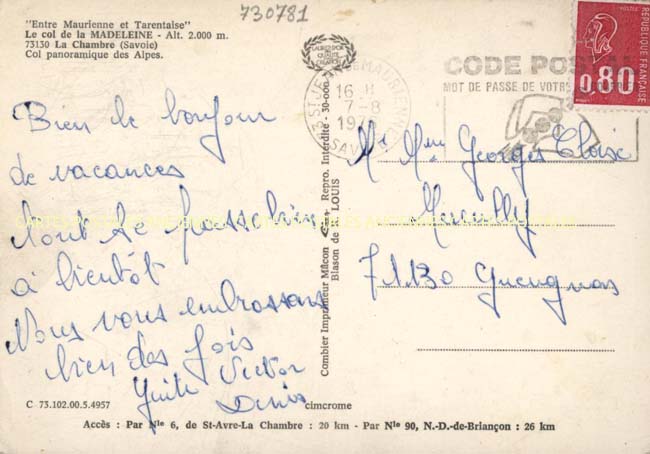 730781
"Entre Maurienne et Tarentaise"
Le col de la MADELEINE - Alt. 2.000 m.
73130 La Chambre (Savoie)
Col panoramique des Alpes.
LABEUR D'OR
QUALITE
CREATION
73 ST JEAN DE MAURIENNE
16 H
7-8
19
SAVOIE
CODE POSTAL
MOT DE PASSE DE VOTRE
REPUBLIQUE FRANÇAISE
0,80
Bien le bonjour
de vacances
tout se passe bien
à bientôt
Nous vous embrassons
bien des fois
Victor
Denis
Mr Mme Georges Eloise
71130 Gueugnon
Combier Imprimeur Mâcon
Repro. Interdite - 30-000
Blason de
LOUIS
C 73.102.00.5.4957
cimcrome
Accès : Par Nle 6, de St-Avre-La Chambre : 20 km - Par Nle 90, N.-D.-de-Briançon : 26 km